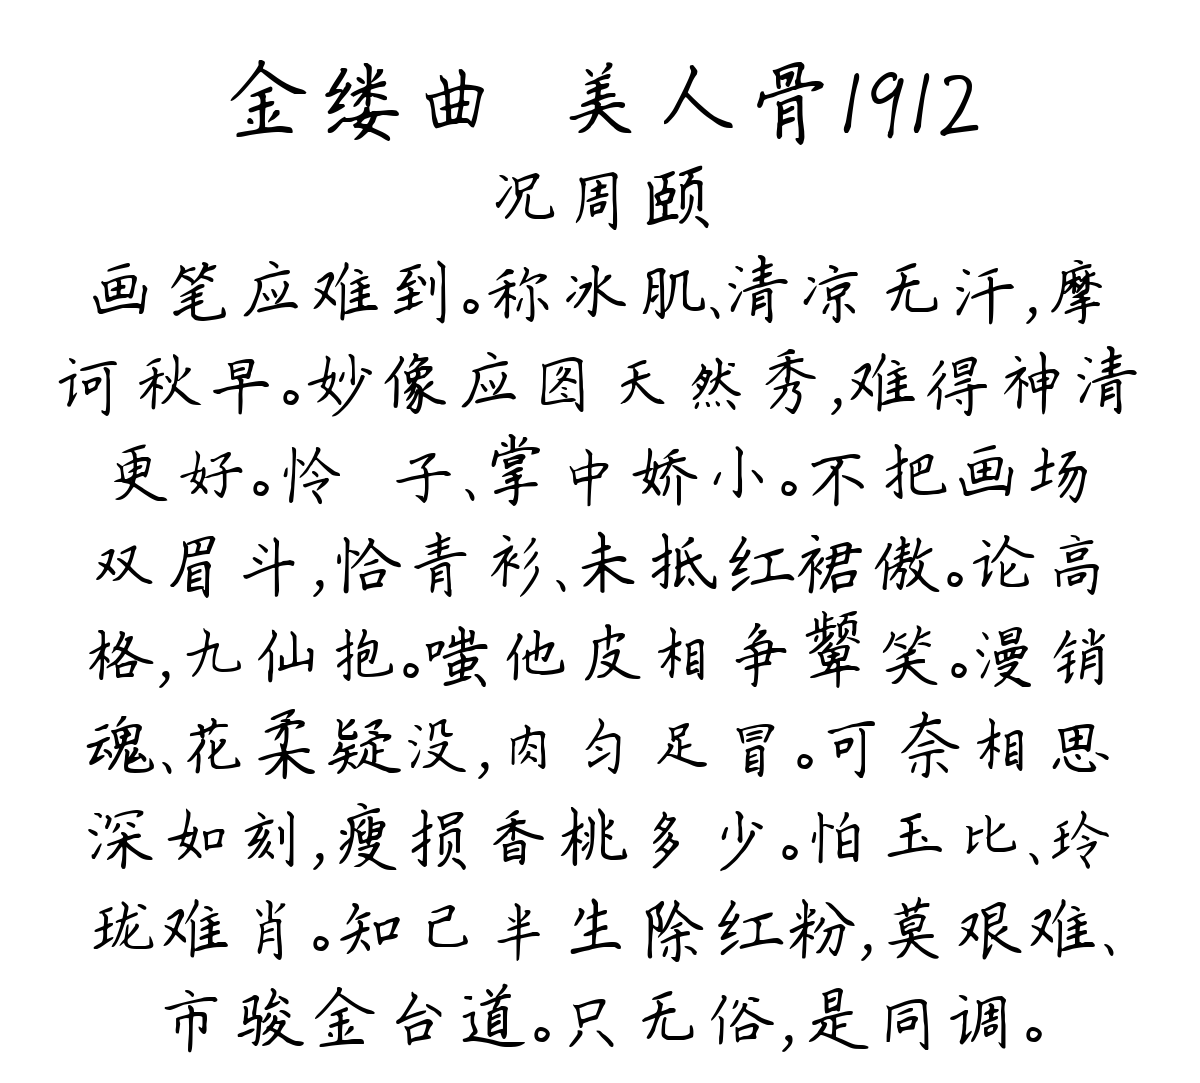 金缕曲 美人骨1912
况周颐
画笔应难到。称冰肌、清凉无汗,摩
诃秋早。妙像应图天然秀,难得神清
更好。怜 子、掌中娇小。不把画场
双眉斗,恰青衫、未抵红裙傲。论高
格,九仙抱。嗤他皮相争颦笑。漫销
魂、花柔疑没,肉匀足冒。可奈相思
深如刻,瘦损香桃多少。怕玉比、玲
珑难肖。知己半生除红粉,莫艰难、
市骏金台道。只无俗,是同调。